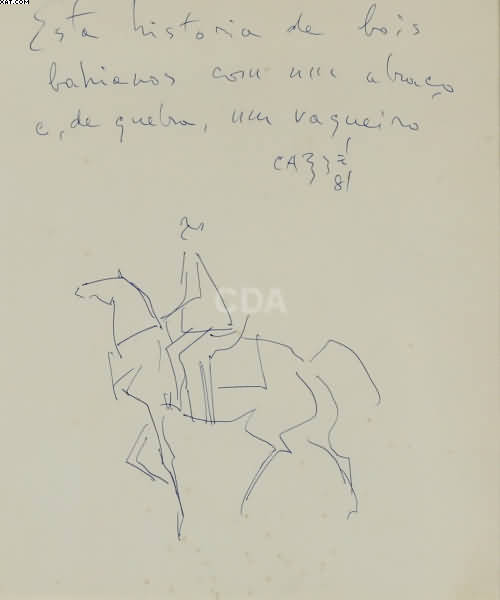 XAT.COM
Esta historia de bois
bahianos com um abraço
e, de quebra, um vaqueiro
81
CDA